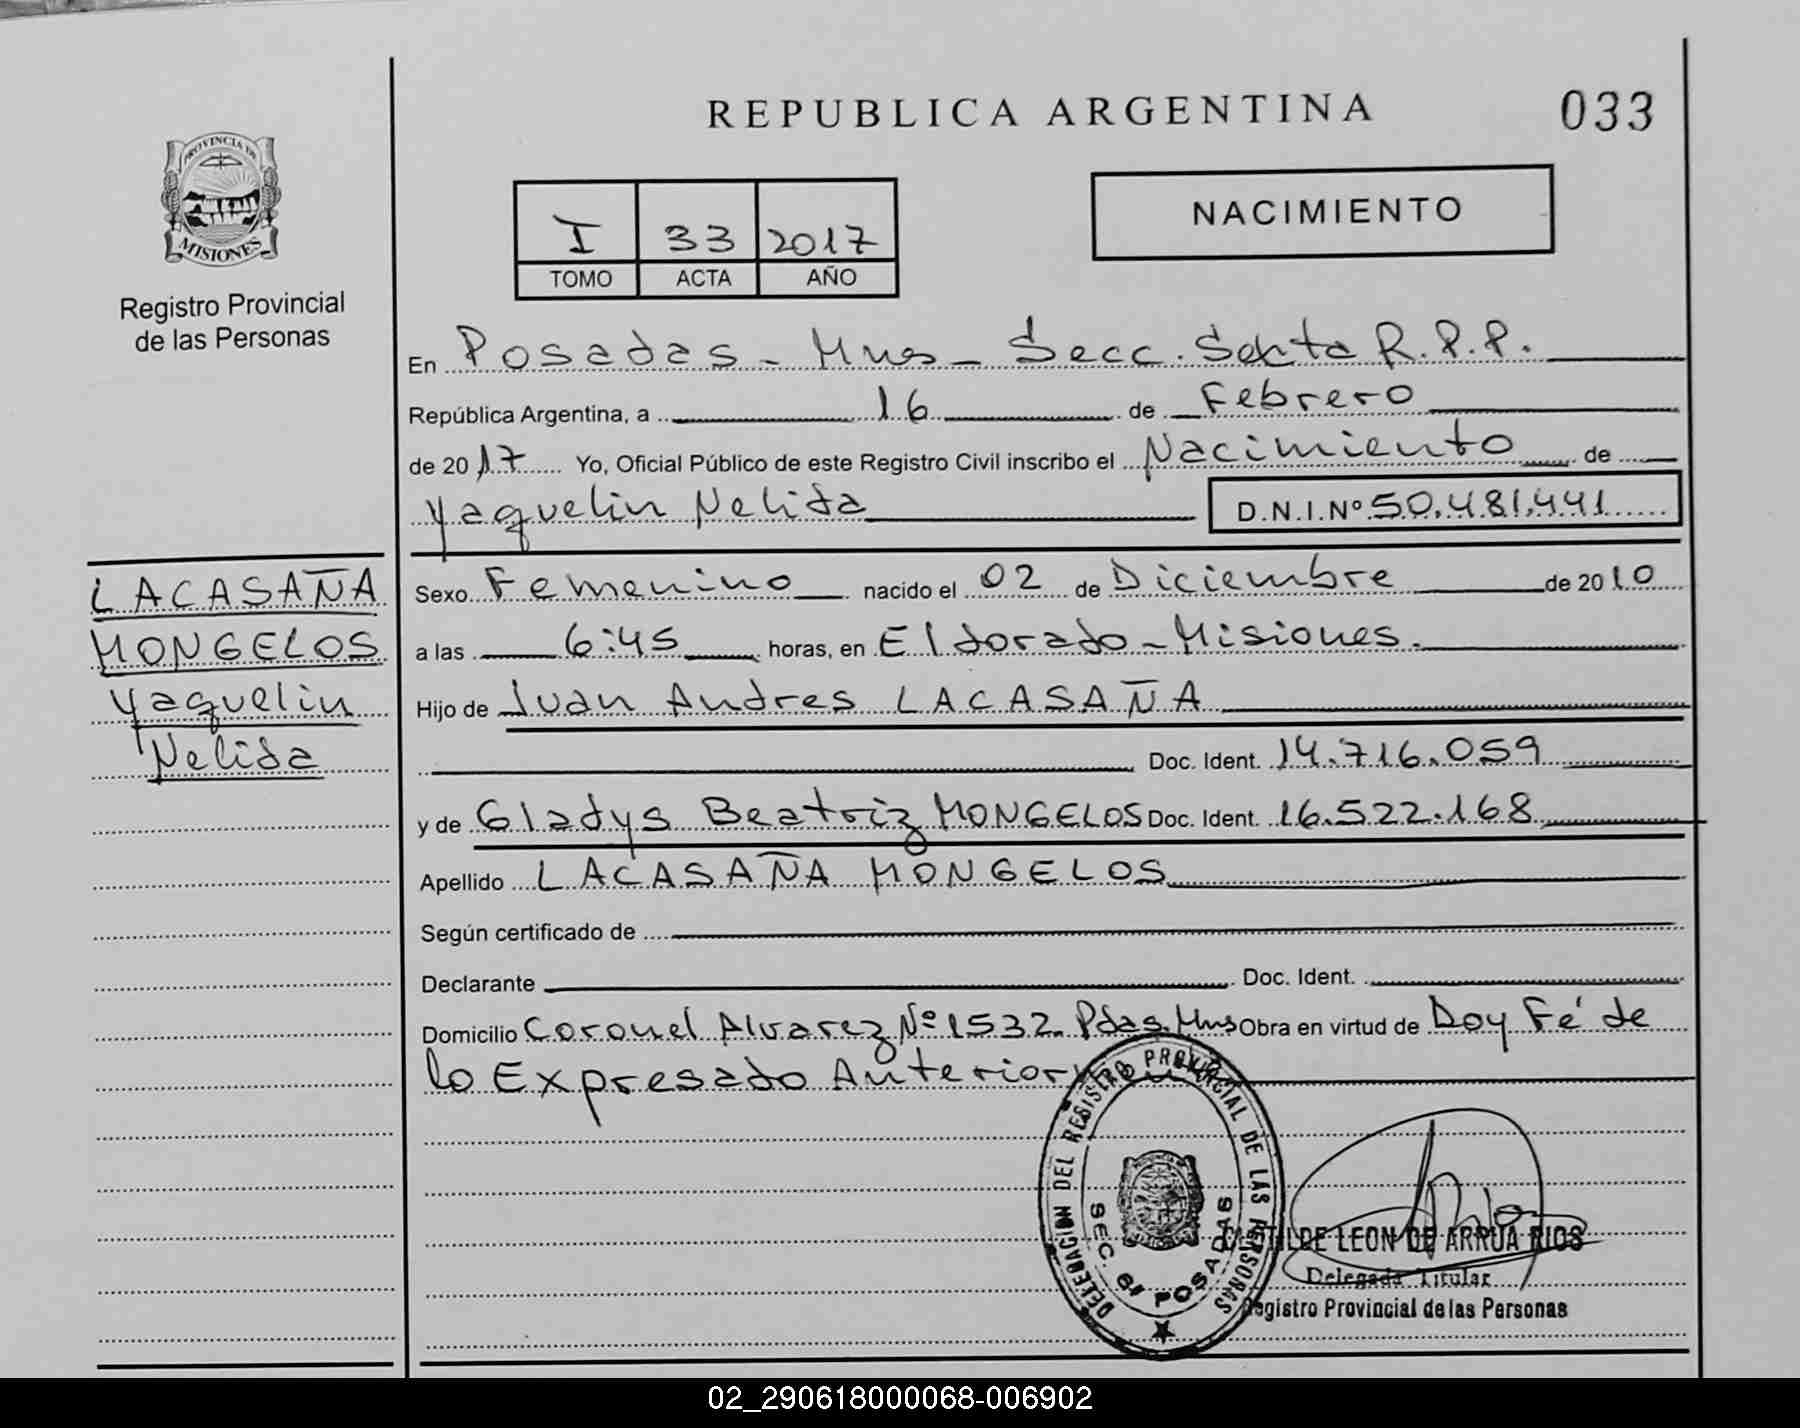 REPUBLICA ARGENTINA
033
PROVINCIA DE
MISIONES
Registro Provincial
de las Personas
NACIMIENTO
I 33 2017
TOMO ACTA AÑO
En Posadas - Mnes - Secc. Sexta R.P.P.
República Argentina, a 16 de Febrero
de 2017 Yo, Oficial Público de este Registro Civil inscribo el Nacimiento de
Yaquelin Nelida D.N.I.Nº 50.481.441
LACASAÑA
MONGELOS
Yaquelin
Nelida
Sexo Femenino nacido el 02 de Diciembre de 2010
a las 6:45 horas, en Eldorado - Misiones.
Hijo de Juan Andres LACASAÑA
Doc. Ident. 14.716.059
y de Gladys Beatriz MONGELOS Doc. Ident. 16.522.168
Apellido LACASAÑA MONGELOS
Según certificado de
Declarante Doc. Ident.
Domicilio Coronel Alvarez Nº 1532. Pdas. Mnes Obra en virtud de Doy Fé de
lo Expresado
DELEGACION DEL REGISTRO PROVINCIAL DE LAS PERSONAS
SEC. 6ta POSADAS
LEON DE ARRUA RIOS
Delegada Titular
Registro Provincial de las Personas
02_290618000068-006902